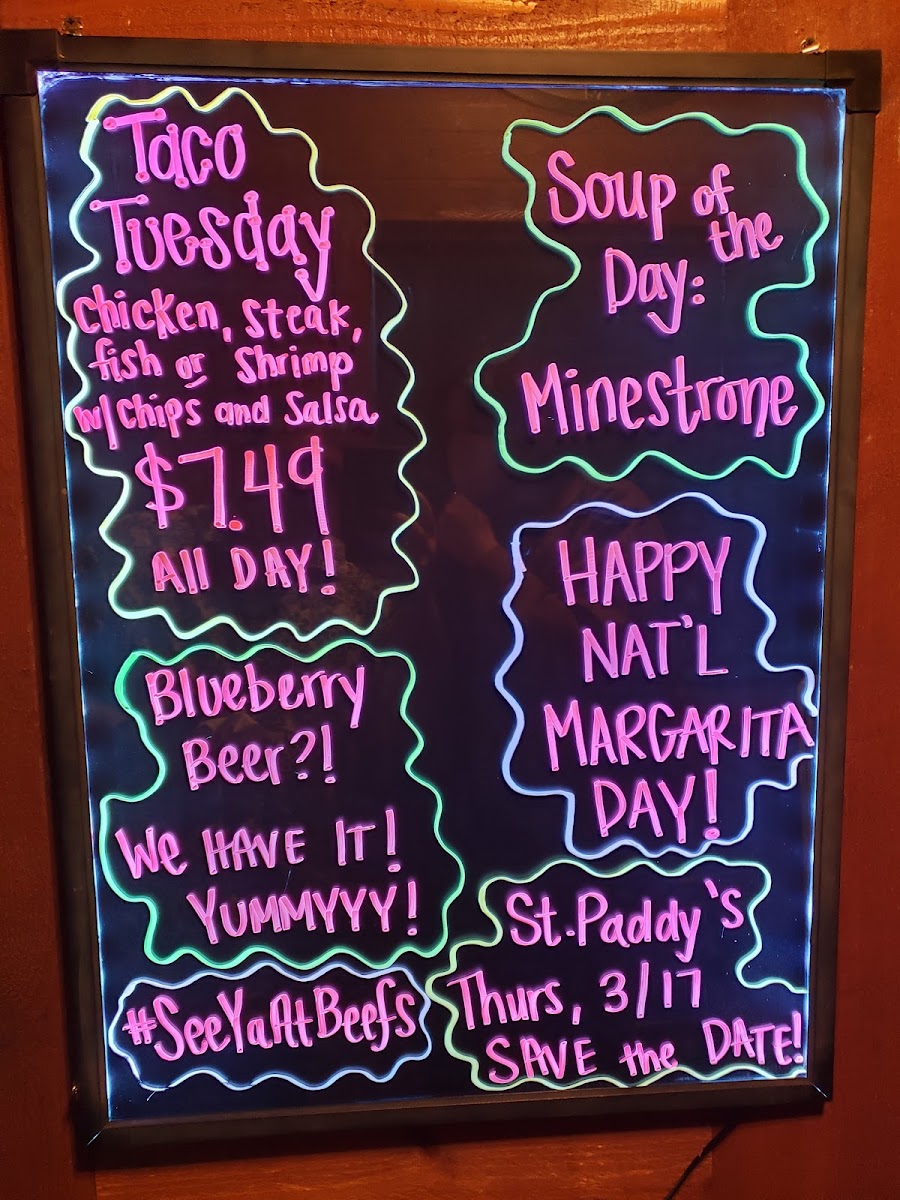 Taco
Tuesday
Chicken, Steak,
fish or Shrimp
w/chips and Salsa
$7.49
All DAY!
Blueberry
Beer?!
We HAVE IT!
YUMMYYY!
#SeeYaAtBeefs
Soup of
the
Day:
Minestrone
HAPPY
NAT'L
MARGARITA
DAY!
St. Paddy's
Thurs, 3/17
SAVE the DATE!